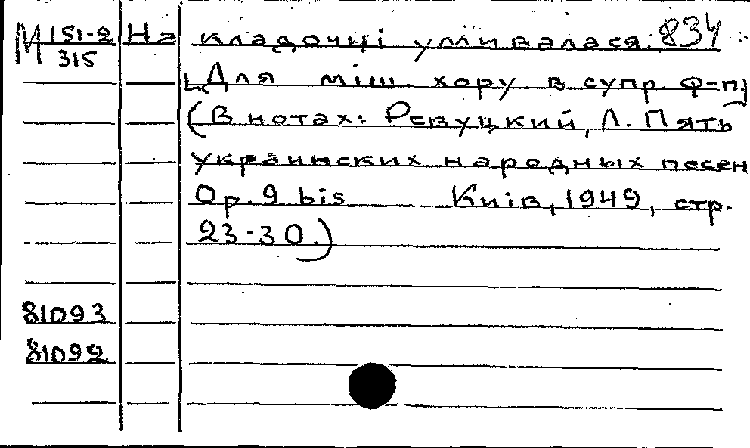 М 151-2 На кладочці умивалася. 834
315 [Для міш. хору в супр. ф-п]
(В нотах: Ревуцкий, Л. Пять
украинских народных песен
Op. 9 bis Київ, 1949, стр.
23-30.)
81093
81092